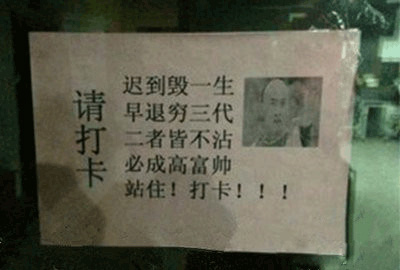 请打卡
迟到毁一生
早退穷三代
二者皆不沾
必成高富帅
站住！打卡！！！